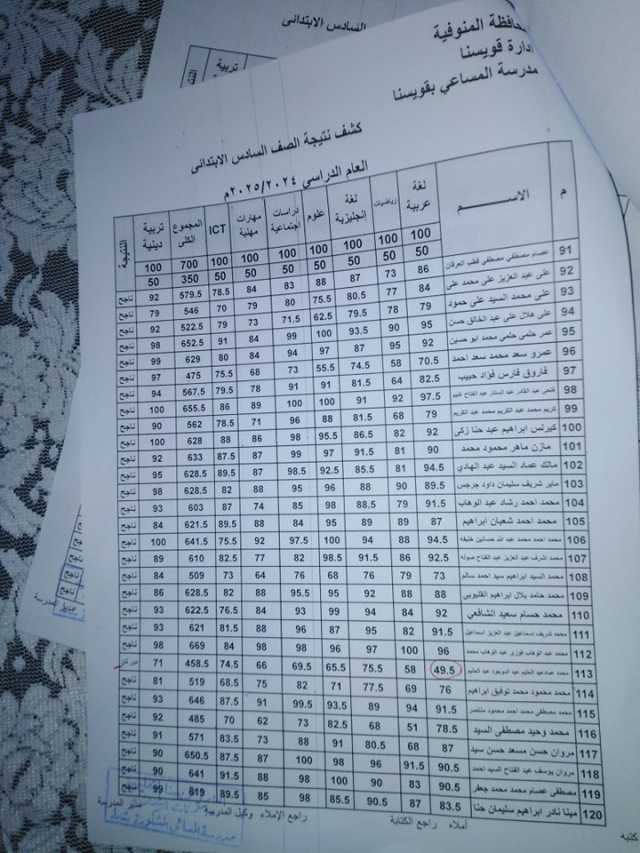 السادس الابتدائى
تربية
محافظة المنوفية
إدارة قويسنا
مدرسة المساعي بقويسنا
كشف نتيجة الصف السادس الابتدائى
العام الدراسي ٢٠٢٥/٢٠٢٤م
م الاســـــم لغة عربية رياضيات لغة إنجليزية علوم دراسات اجتماعية مهارات مهنية ICT المجموع الكلى تربية دينية النتيجة
100 100 100 100 100 100 100 700 100
50 50 50 50 50 50 50 350 50
91 عصام مصطفي مصطفي قطب العرقان 86 73 87 88 83 84 78.5 579.5 92 ناجح
92 على عبد العزيز على محمد على 84 77 80.5 75.5 80 79 70 546 79 ناجح
93 على محمد السيد على حمود 79 78 79.5 62.5 71.5 73 79 522.5 92 ناجح
94 على هلال على عبد الخالق حسن 95 90 93.5 100 99 84 91 652.5 98 ناجح
95 عمر حلمى حلمى محمد ابو حسين 92 95 87 97 94 84 80 629 99 ناجح
96 عمرو سعد محمد سعد احمد 70.5 58 74.5 55.5 73 68 75.5 475 97 ناجح
97 فاروق فارس فؤاد حبيب 82.5 64 81.5 91 91 78 79.5 567.5 94 ناجح
98 فتحى عبد القادر عبد الستار عبد الفتاح 97.5 92 91 100 100 89 86 655.5 100 ناجح
99 كريم محمد عبد الكريم محمد عبد الكريم 79 68 81.5 88 96 71 78.5 562 90 ناجح
100 كيرلس ابراهيم عيد حنا زكى 92 82 86.5 95.5 98 86 88 628 100 ناجح
101 مازن ماهر محمود محمد 90 81 91.5 97 99 87 87.5 633 92 ناجح
102 مالك عماد السيد عبد الهادي 94.5 81 85.5 92.5 98.5 87 89.5 628.5 95 ناجح
103 ماير شريف سليمان داود جرجس 89.5 90 88 96 95 88 82 628.5 98 ناجح
104 محمد احمد رشاد عبد الوهاب 91.5 79 88.5 98 85 74 87 603 93 ناجح
105 محمد احمد شعبان ابراهيم 87 89 89 95 84 88 89.5 621.5 84 ناجح
106 محمد احمد محمد عبد الله حسانين خليفه 94.5 88 94 100 97.5 92 75.5 641.5 100 ناجح
107 محمد اشرف عبد العزيز عبد الفتاح صوله 92.5 86 91.5 98.5 82 77 82.5 610 89 ناجح
108 محمد السيد ابراهيم سيد احمد سالم 73 79 76 68 76 64 73 509 84 ناجح
109 محمد حامد بلال ابراهيم القليوبي 88 88 92 95 95.5 88 82 628.5 86 ناجح
110 محمد حسام سعيد الشافعي 92 99 84 94 93 84 76.5 622.5 93 ناجح
111 محمد شريف اسماعيل عبد العزيز اسماعيل 91.5 82 95 87 96 88 81.5 621 93 ناجح
112 محمد عبد الوهاب فوزى عبد الوهاب محمد 96 100 97 96 98 98 84 669 98 ناجح
113 محمد عماد عبد الحليم عبد الموجود عبد الحليم 49.5 58 75.5 65.5 69.5 66 74.5 458.5 71
114 محمد محمود محمد توفيق ابراهيم 76 69 77.5 71 82 75 68.5 519 81 ناجح
115 محمد مصطفى محمد احمد محمود منتصر 91.5 94 89 93.5 99.5 91 87.5 646 93 ناجح
116 محمد وحيد مصطفى السيد 78.5 51 68 82.5 73 62 70 485 92 ناجح
117 مروان حسن مسعد حسن سيد 87 68 80.5 91 88 73 83.5 571 91 ناجح
118 مروان يوسف عبد الفتاح السيد احمد 90.5 91.5 96 98 100 87 87.5 650.5 90 ناجح
119 مصطفى عصام محمد محمد جعفر 90.5 83 90 100 98 88 91.5 641 90 ناجح
120 مينا نادر ابراهيم سليمان حنا 83.5 87 90.5 85.5 98 85 89.5 619 99 ناجح
كتبه أملاه راجع الكتابة راجع الإملاء وكيل المدرسة مدير المدرسة